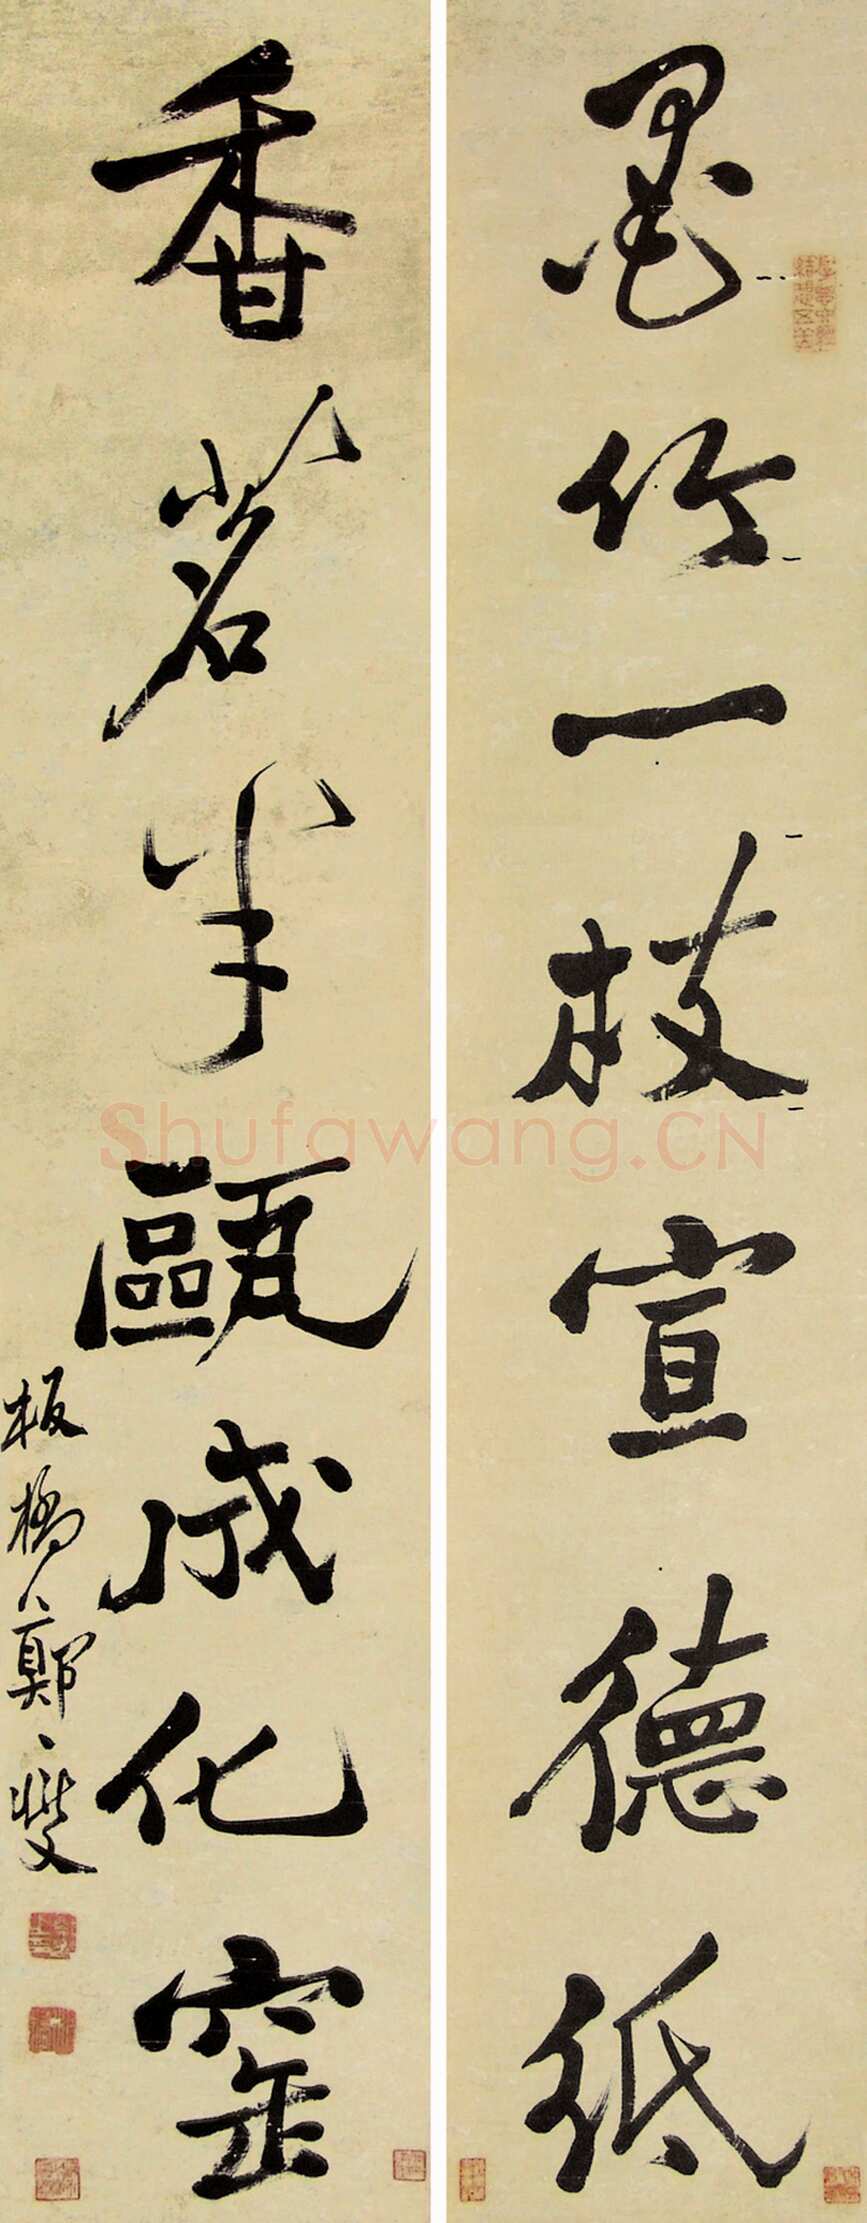 墨竹一枝宣德紙
香茗半甌成化窰
板橋鄭燮
Shufawang.CN